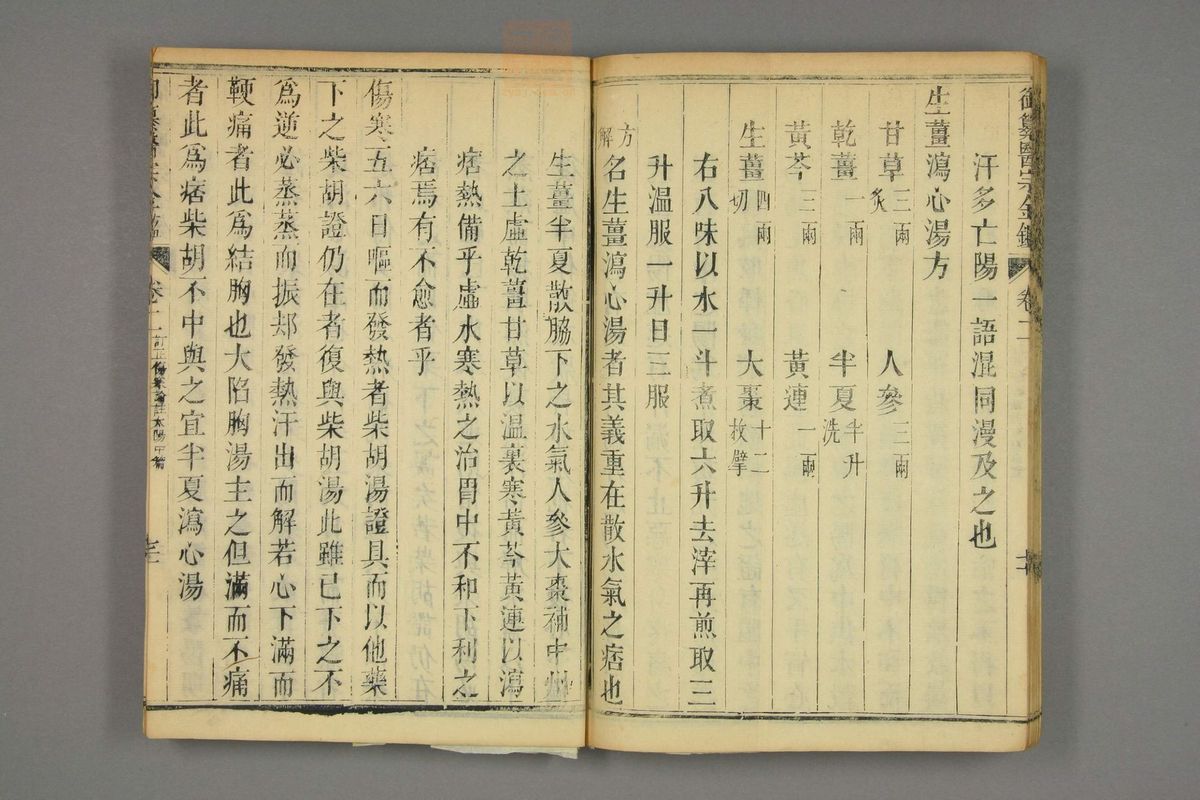 御纂醫宗金鑑 卷二
汗多亡陽一語混同漫及之也
生薑瀉心湯方
甘草三兩炙 人參三兩
乾薑一兩 半夏半升洗
黃芩三兩 黃連一兩
生薑四兩切 大棗十二枚擘
右八味以水一斗煮取六升去滓再煎取三
升溫服一升日三服
方解名生薑瀉心湯者其義重在散水氣之痞也
生薑半夏散脇下之水氣人參大棗補中州
之土虛乾薑甘草以溫裏寒黃芩黃連以瀉
痞熱備乎虛水寒熱之治胃中不和下利之
痞焉有不愈者乎
傷寒五六日嘔而發熱者柴胡湯證具而以他藥
下之柴胡證仍在者復與柴胡湯此雖已下之不
爲逆必蒸蒸而振却發熱汗出而解若心下滿而
鞕痛者此爲結胸也大陷胸湯主之但滿而不痛
者此爲痞柴胡不中與之宜半夏瀉心湯
卷二 訂正傷寒論註太陽中篇